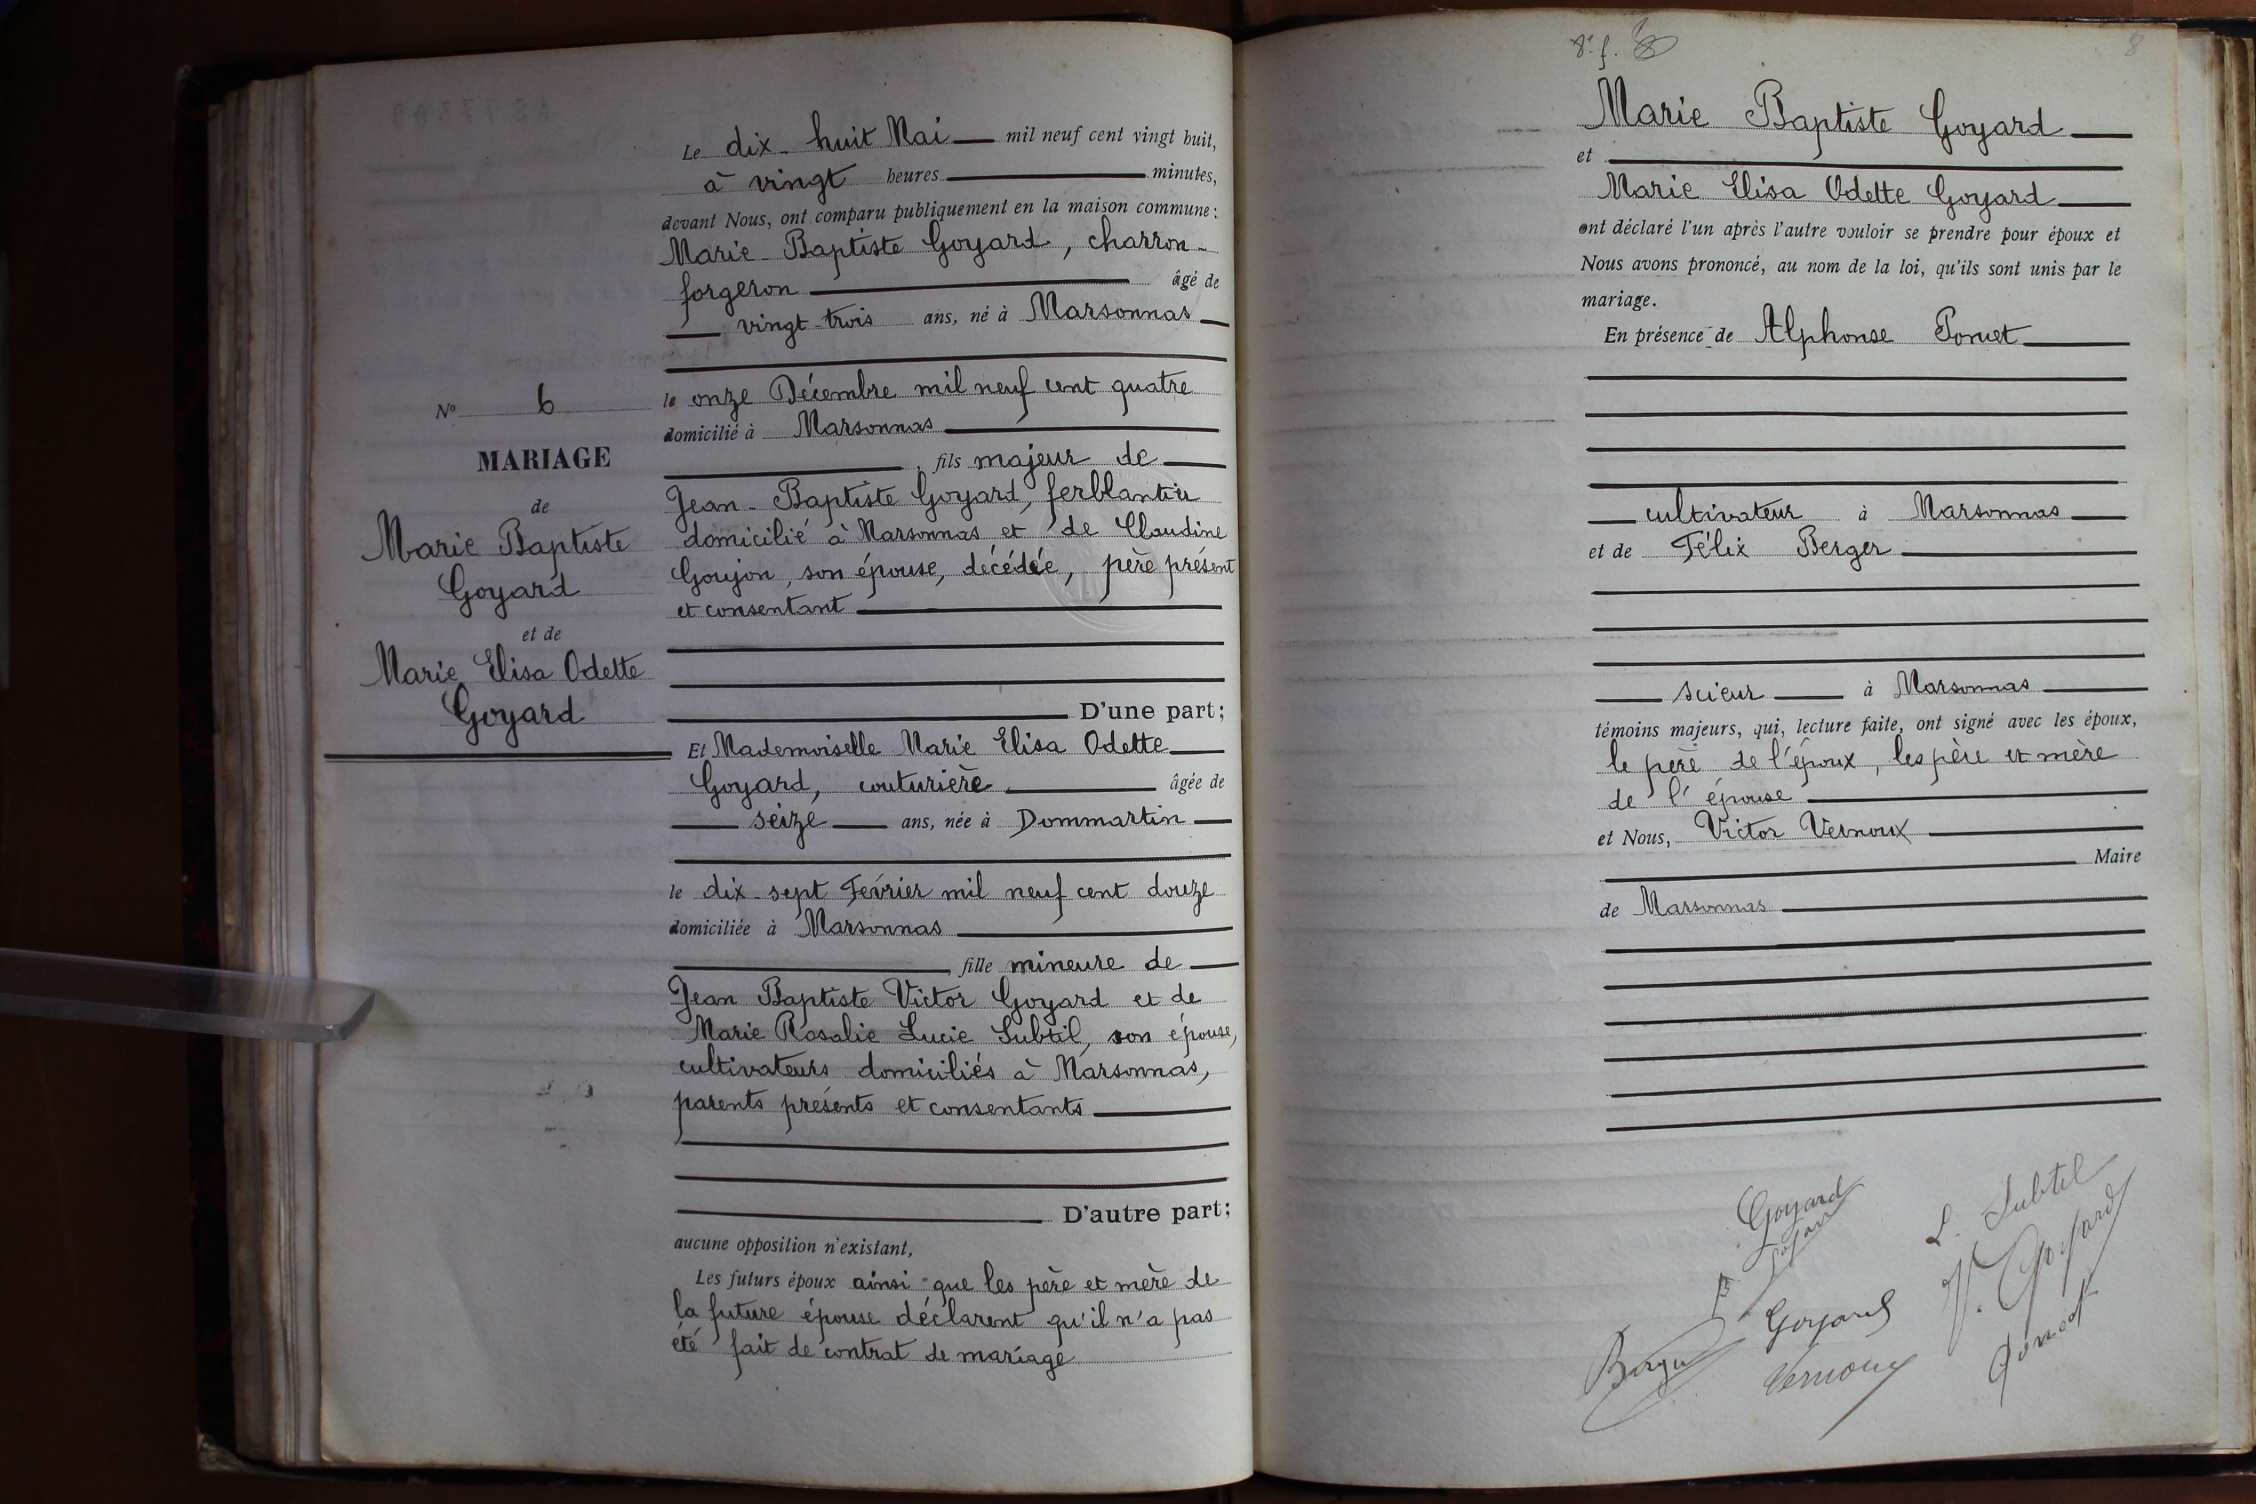 N° 6
MARIAGE
de
Marie Baptiste
Goyard
et de
Marie Elisa Odette
Goyard
Le dix-huit Mai mil neuf cent vingt huit,
à vingt heures minutes,
devant Nous, ont comparu publiquement en la maison commune:
Marie-Baptiste Goyard, charron-
forgeron âgé de
vingt-trois ans, né à Marsonnas
le onze Décembre mil neuf cent quatre
domicilié à Marsonnas
, fils majeur de
Jean-Baptiste Goyard, ferblantier
domicilié à Marsonnas et de Claudine
Goujon, son épouse, décédée, père présent
et consentant
D'une part;
Et Mademoiselle Marie Elisa Odette
Goyard, couturière âgée de
seize ans, née à Dommartin
le dix-sept Février mil neuf cent douze
domiciliée à Marsonnas
, fille mineure de
Jean Baptiste Victor Goyard et de
Marie Rosalie Lucie Subtil, son épouse,
cultivateurs domiciliés à Marsonnas,
parents présents et consentants
D'autre part;
aucune opposition n'existant,
Les futurs époux ainsi que les père et mère de
la future épouse déclarent qu'il n'a pas
été fait de contrat de mariage
8
Marie Baptiste Goyard
et
Marie Elisa Odette Goyard
ont déclaré l'un après l'autre vouloir se prendre pour époux et
Nous avons prononcé, au nom de la loi, qu'ils sont unis par le
mariage.
En présence de Alphonse Ponet
cultivateur à Marsonnas
et de Félix Berger
scieur à Marsonnas
témoins majeurs, qui, lecture faite, ont signé avec les époux,
le père de l'époux, les père et mère
de l'épouse
et Nous, Victor Vernoux
Maire
de Marsonnas
Goyard
L. Subtil
V. Goyard
Goyard
Ponet
Berger
Vernoux